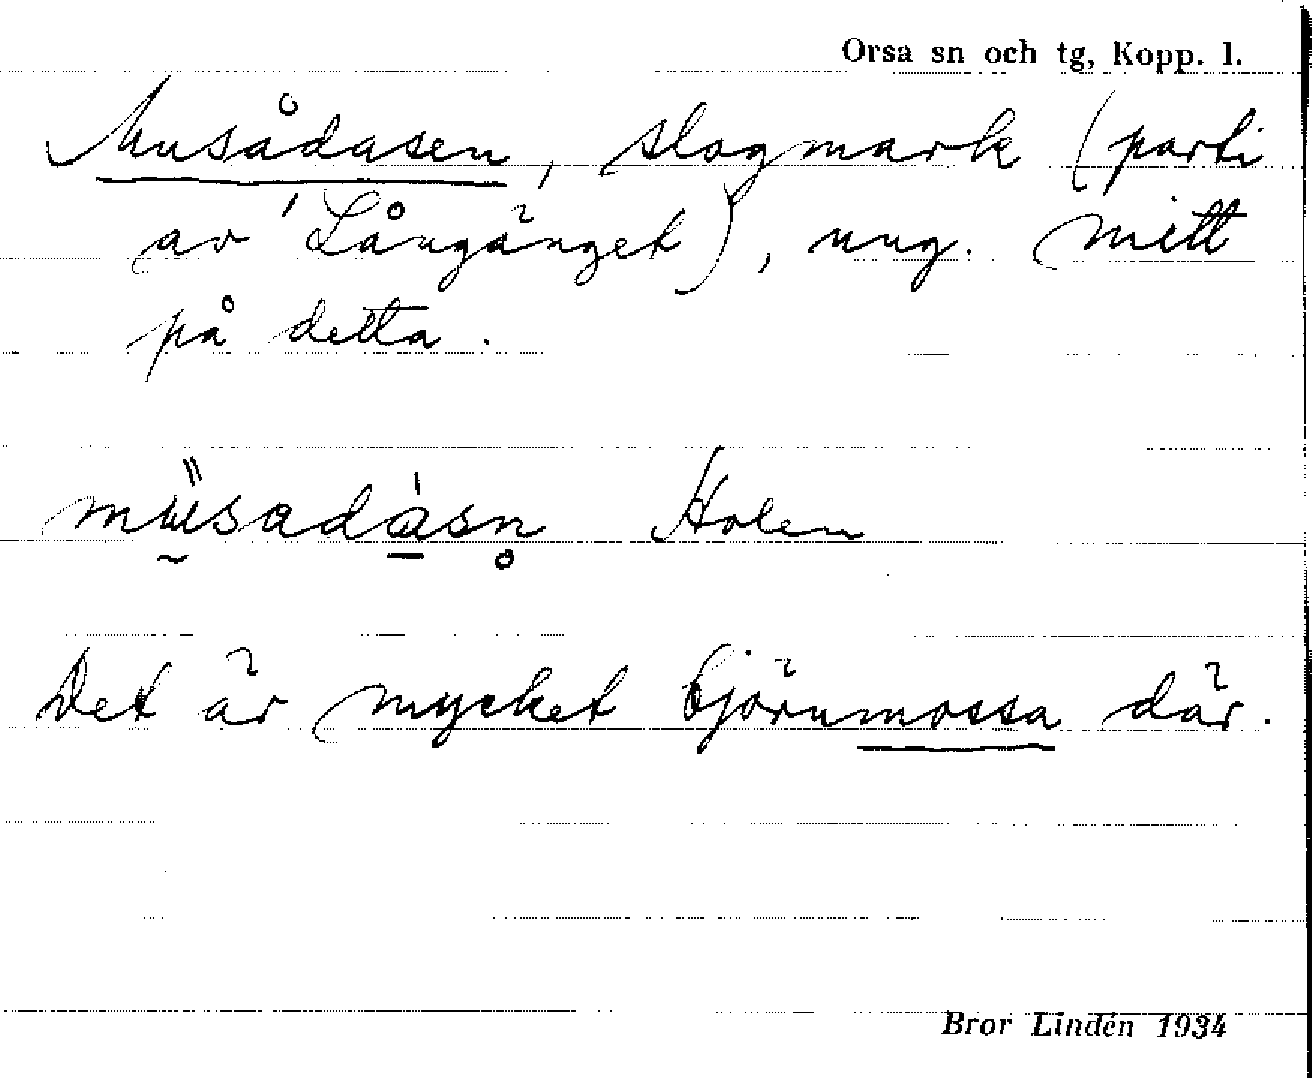 Orsa sn och tg, Kopp. l.
Musådasen, slogmark (parti
av Långänget), ung. mitt
på detta.
müsadàsn Holen
Det är mycket björnmossa där.
Bror Lindén 1934